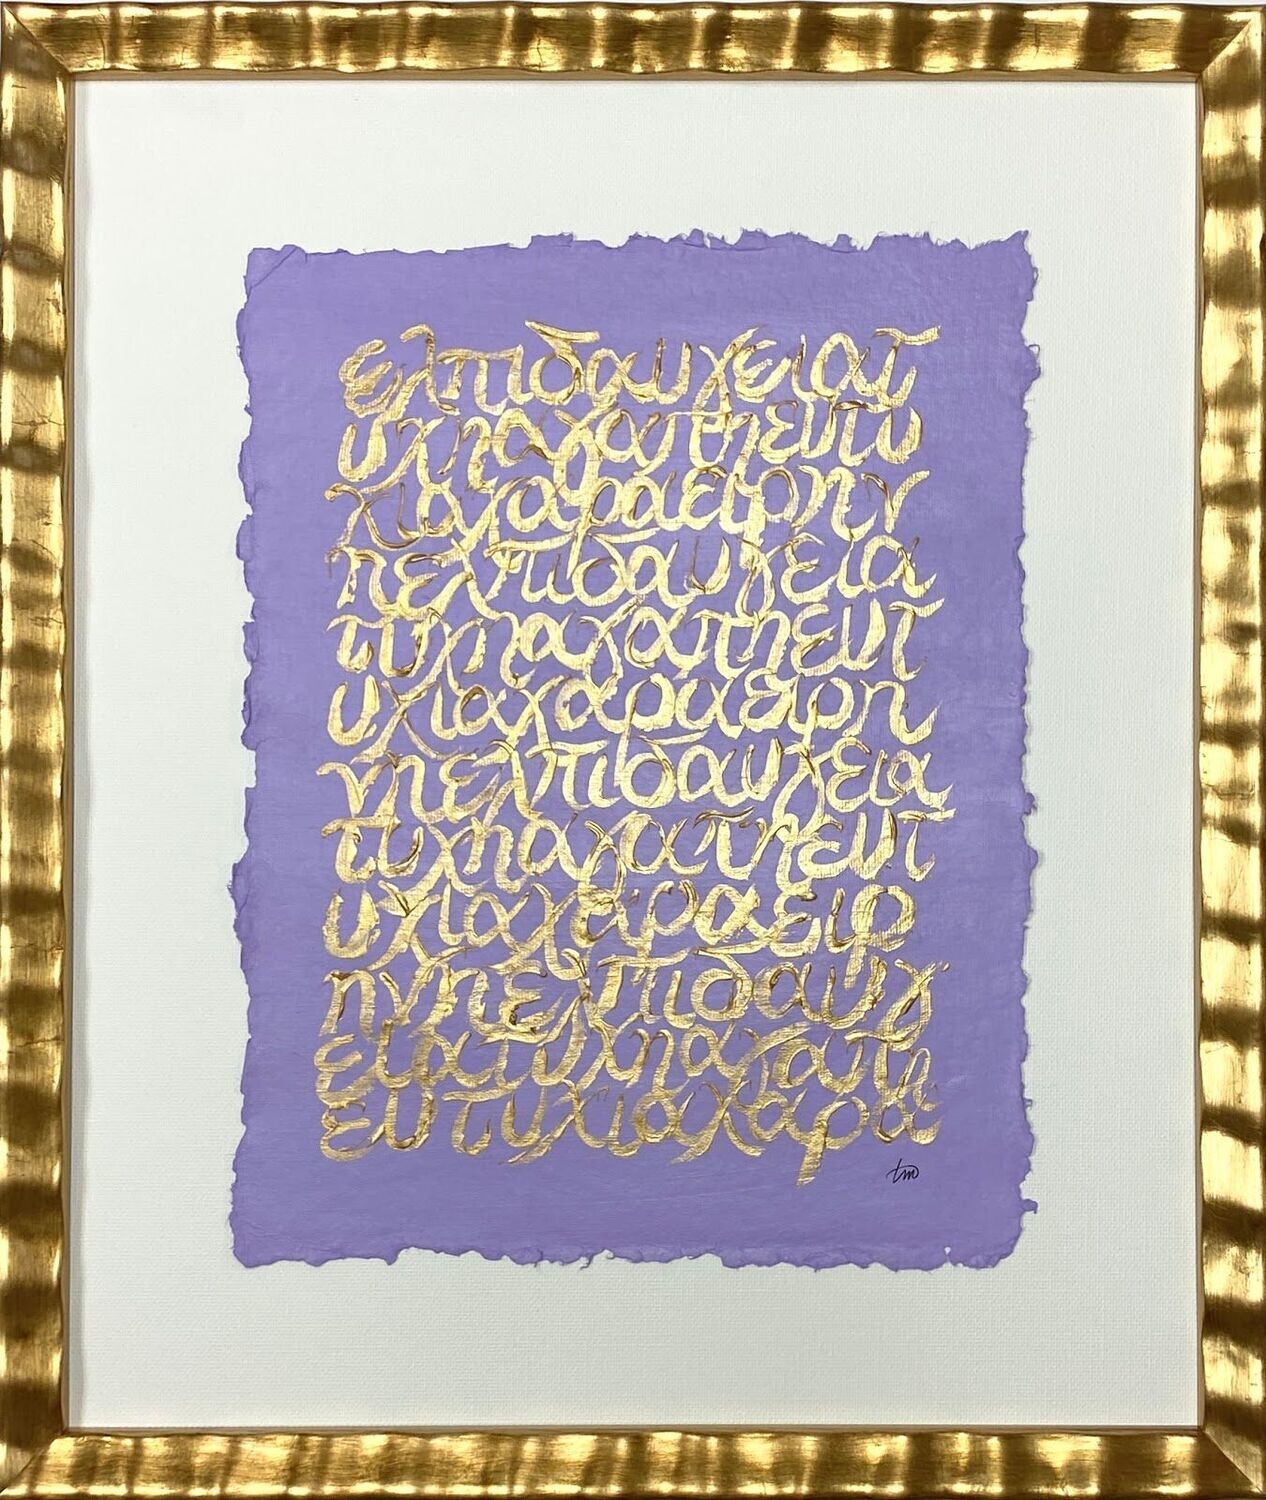 ελπιδαυγειατ
υχηαγαπηευτυ
χιαχαραειρην
ηελπιδαυγεια
τυχηαγαπηευτ
υχιαχαραειρη
νηελπιδαυγεια
τυχηαγαπηευτ
υχιαχαραειρ
ηνηελπιδαυγ
ειατυχηαγαπη
ευτυχιαχαρα
tm